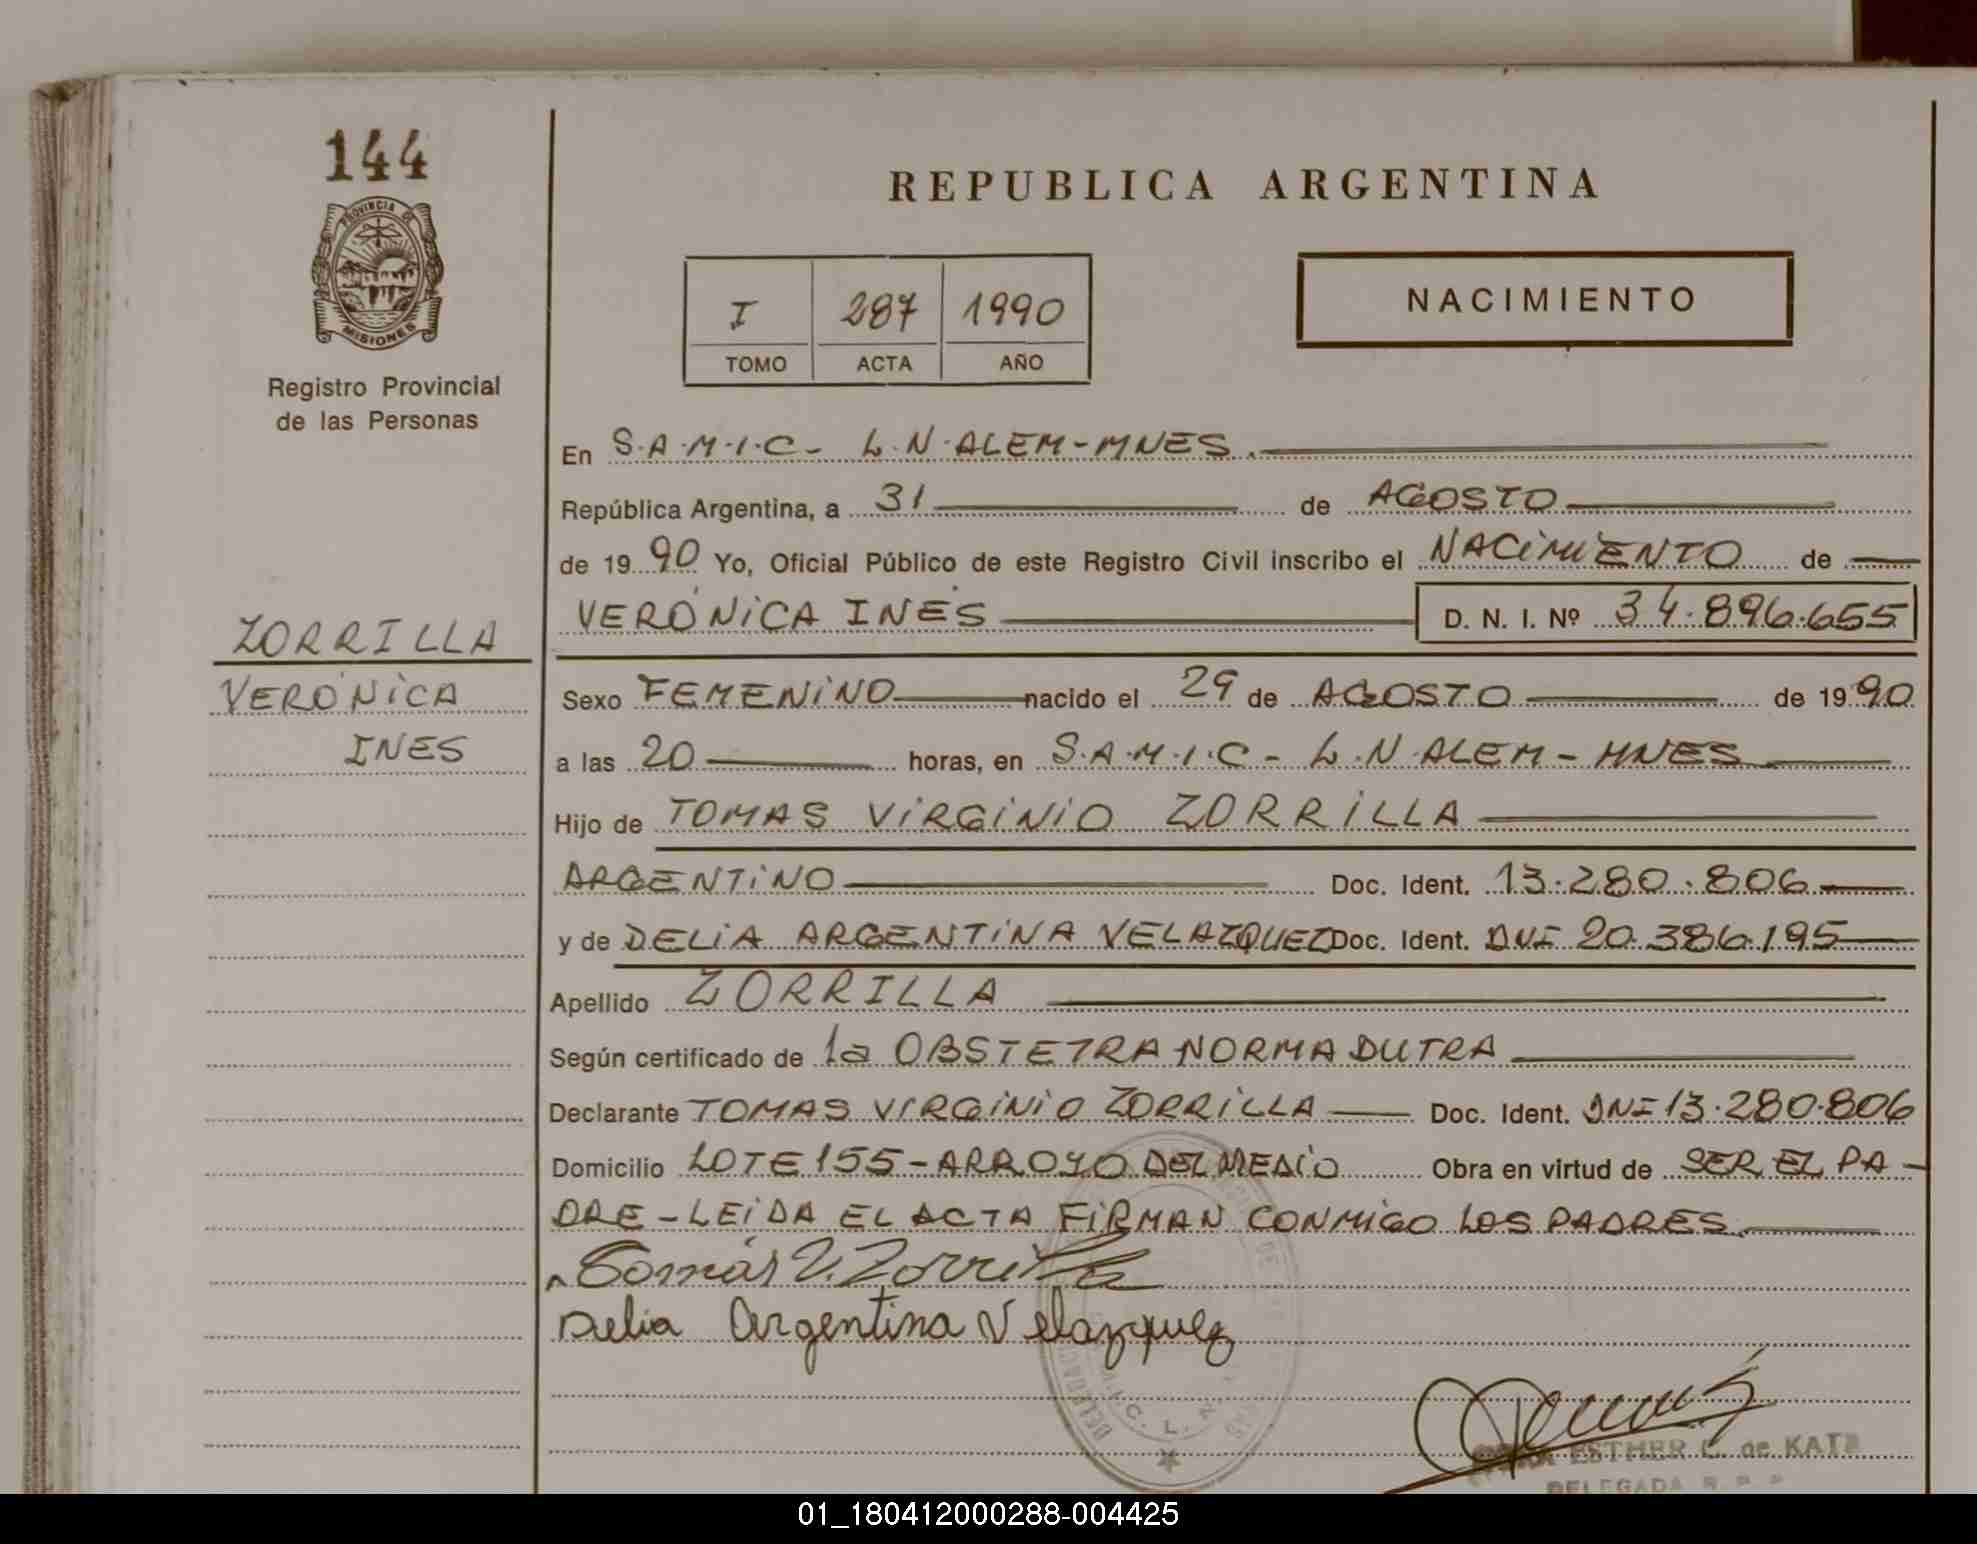 144
PROVINCIA DE
MISIONES
Registro Provincial
de las Personas
REPUBLICA ARGENTINA
I 287 1990
TOMO ACTA AÑO
NACIMIENTO
En S.A.M.I.C- L.N.ALEM-MNES.
República Argentina, a 31 de AGOSTO
de 1990 Yo, Oficial Público de este Registro Civil inscribo el NACIMIENTO de
VERÓNICA INES D. N. I. Nº 34.896.655
ZORRILLA
VERÓNICA
INES
Sexo FEMENINO nacido el 29 de AGOSTO de 1990
a las 20 horas, en S.A.M.I.C- L.N.ALEM-MNES
Hijo de TOMAS VIRGINIO ZORRILLA
ARGENTINO Doc. Ident. 13.280.806
y de DELIA ARGENTINA VELAZQUEZ Doc. Ident. DNI 20.386.195
Apellido ZORRILLA
Según certificado de la OBSTETRA NORMA DUTRA
Declarante TOMAS VIRGINIO ZORRILLA Doc. Ident. DNI 13.280.806
Domicilio LOTE 155-ARROYO DEL MEDIO Obra en virtud de SER EL PA-
DRE-LEIDA EL ACTA FIRMAN CONMIGO LOS PADRES.
Tomás V. Zorrilla
Delia Argentina Velazquez
ESTHER C. de KATZ
DELEGADA R. P. P
01_180412000288-004425